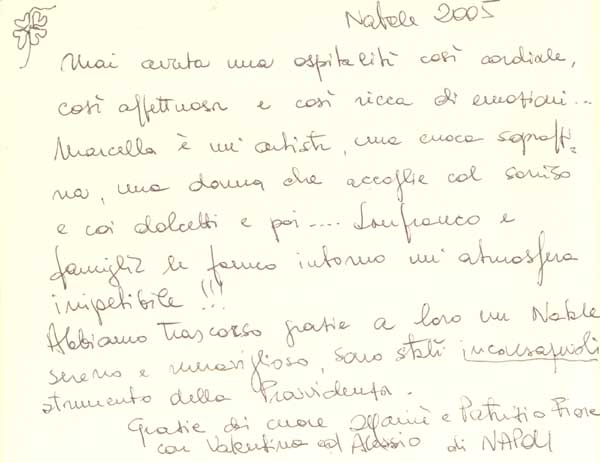 Natale 2005
Mai avuta una ospitalità così cordiale,
così affettuosa e così ricca di emozioni...
Marcella è un'artista, una cuoca sopraffi-
na, una donna che accoglie col sorriso
e coi dolcetti e poi.... Lonfranco e
famiglia le fanno intorno un'atmosfera
irripetibile!!!
Abbiamo trascorso grazie a loro un Natale
sereno e meraviglioso, sono stati inconsapevoli
strumento della Provvidenza.
Grazie di cuore e Patrizio Fiore
con Valentina ed Alessio di NAPOLI